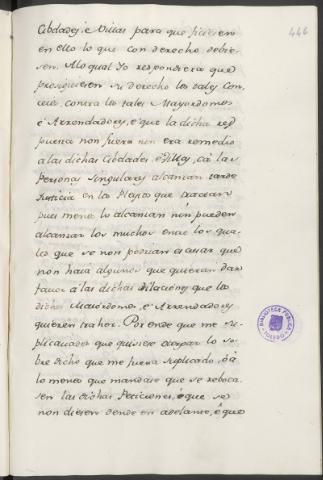 446
Cibdades, è Villas para que ficiesen
en ello lo que con derecho debie-
sen. Alo qual Yo respondiera que
prosiguiesen su derecho los tales Con-
cejos contra los tales Mayordomos
è Arrendadores, è que la dicha res-
puesta non fuera nin era remedio
a las dichas Cibdades è Villas, ca las
Personas Singulares alcanzan tarde
Justicia en los Pleytos que tractan,
pues menos lo alcanzan nin pueden
alcanzar los muchos entre los qua-
les que se non podrian escusar que
non haia algunos que quieran dar
favor à las dichas dilaciones que los
dichos Maiordomos, è Arrendadores
quieren traher. Por ende que me su-
plicavades que quisiese acatar lo so-
bre dicho que me fuera suplicado, ò à
lo menos que mandase que se reboca-
sen las dichas Peticiones, è que se
non diesen dende en adelante, è que
BIBLIOTECA PÚBLICA
TOLEDO